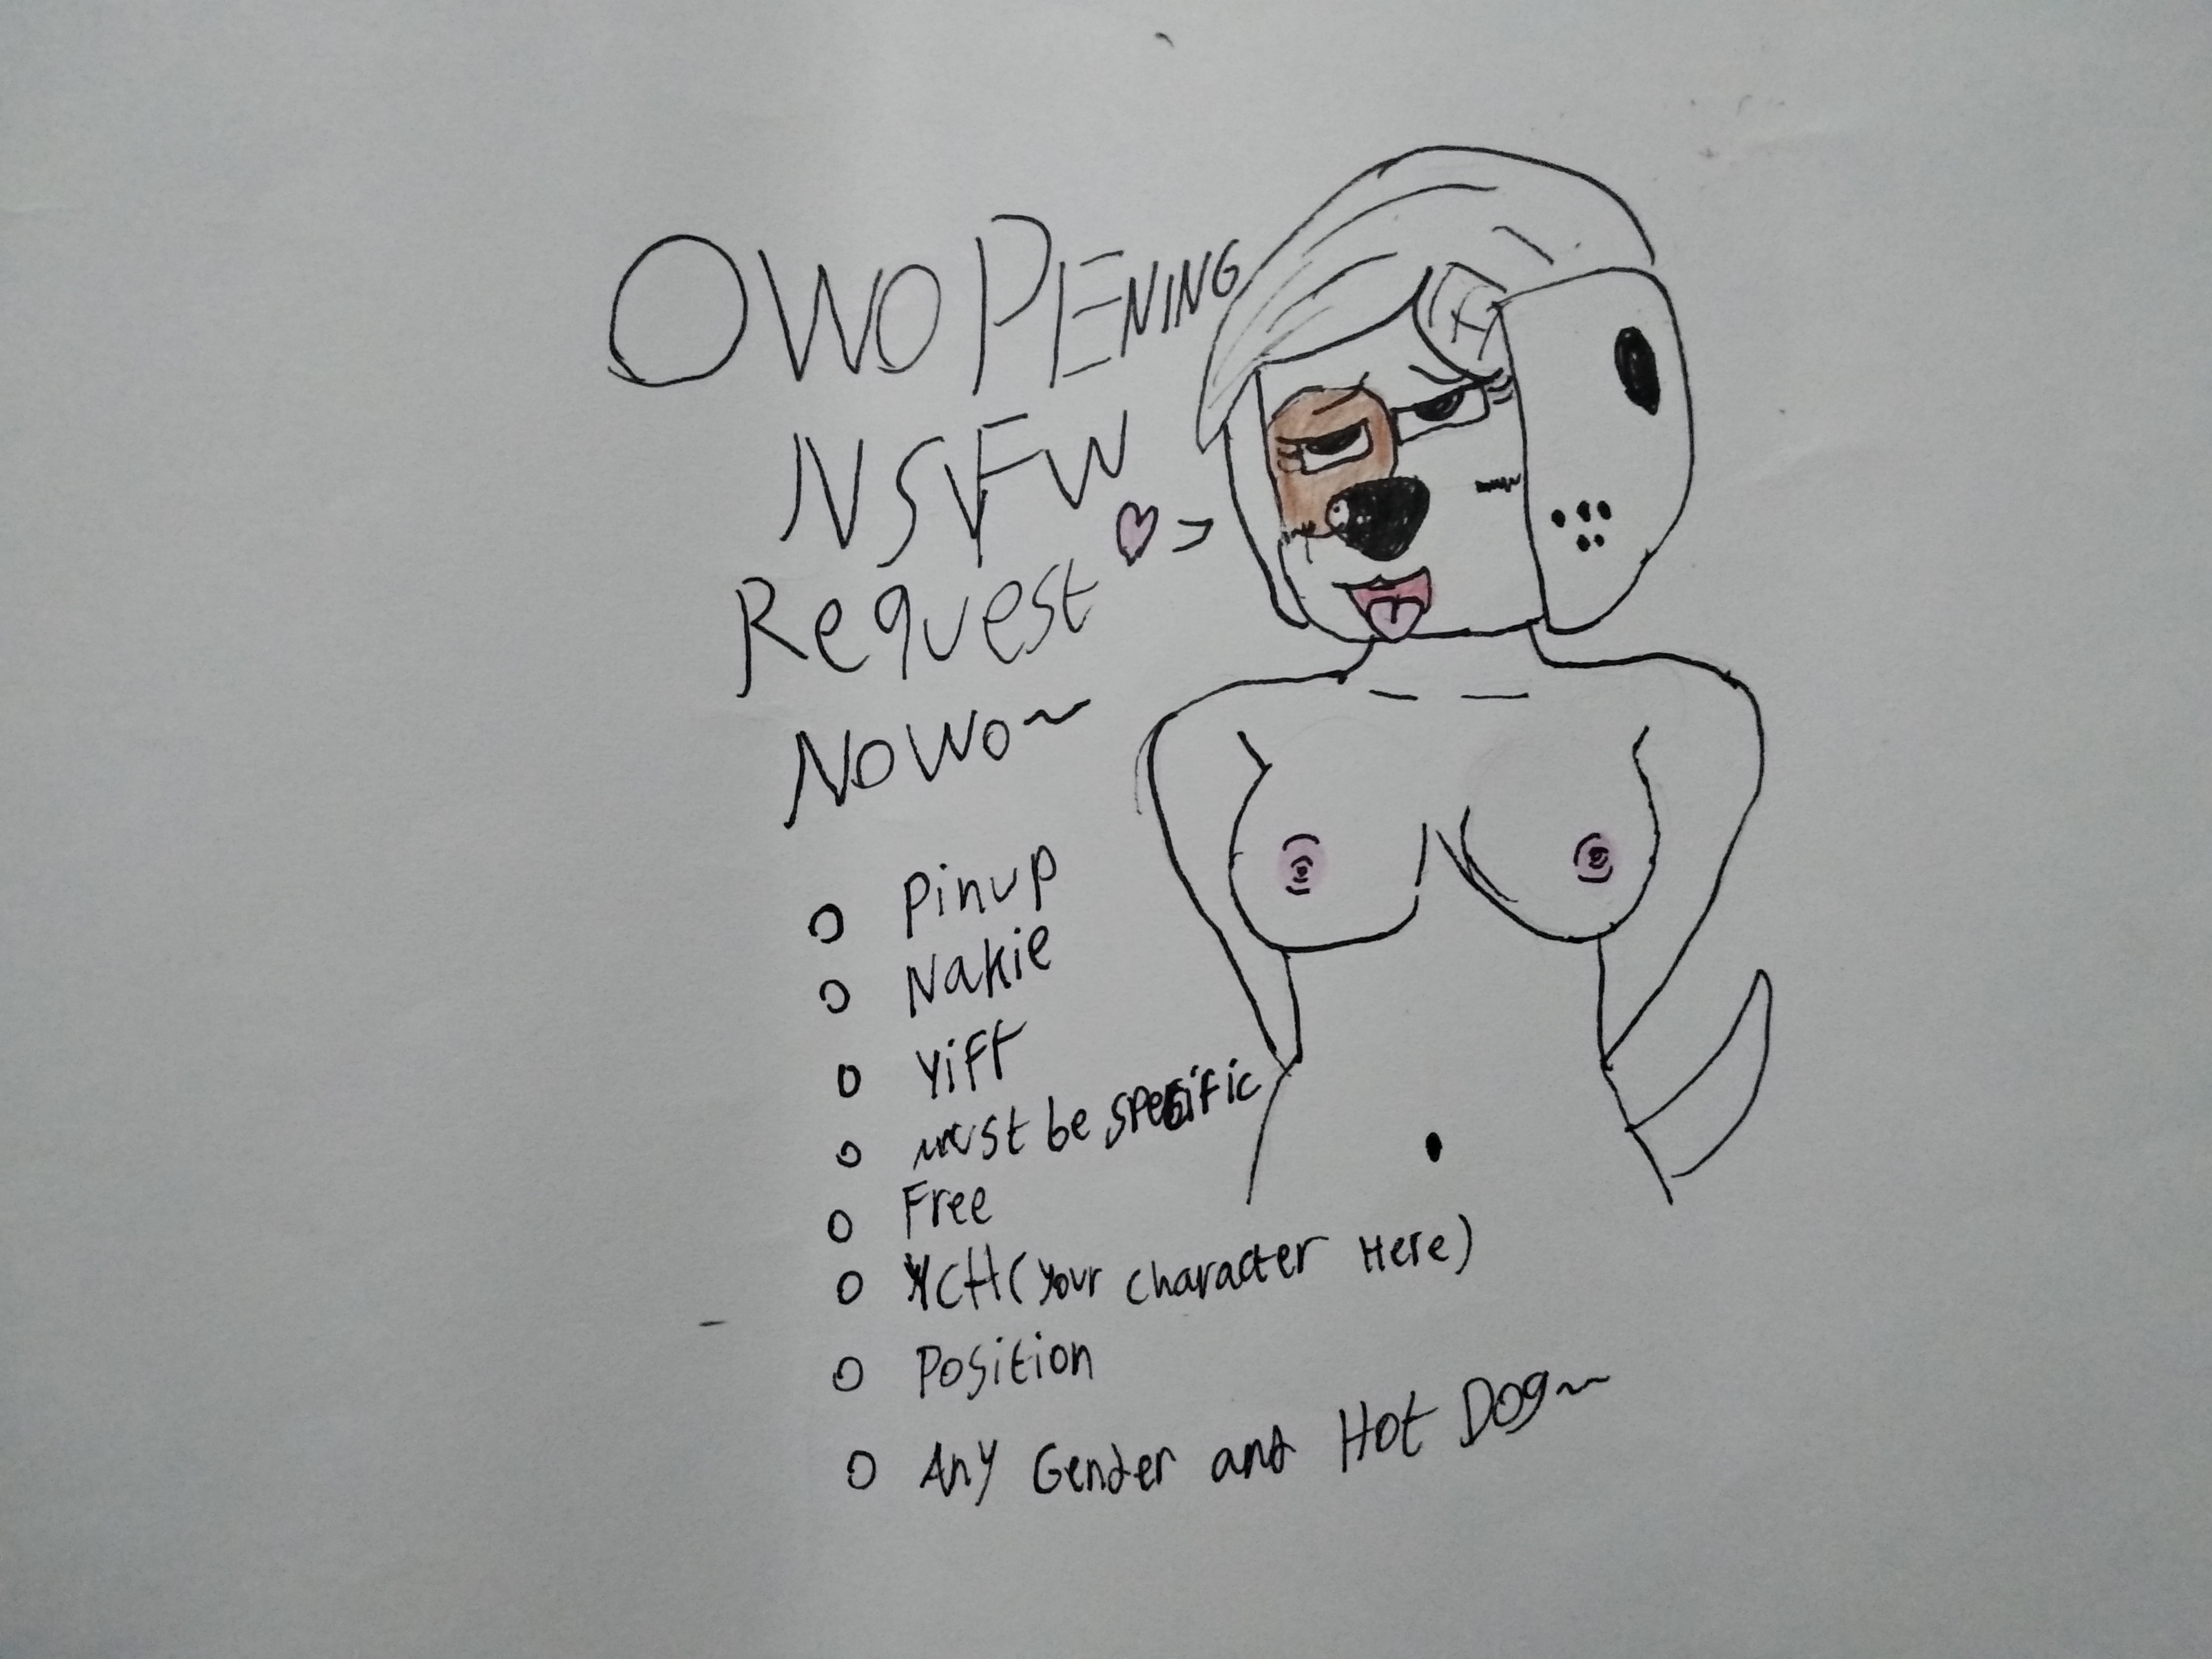 OWOPENING
NSFW
Request
NOWO~
Pinup
Nakie
Yiff
must be specific
Free
YCH (Your Character Here)
Position
Any Gender and Hot Dog~